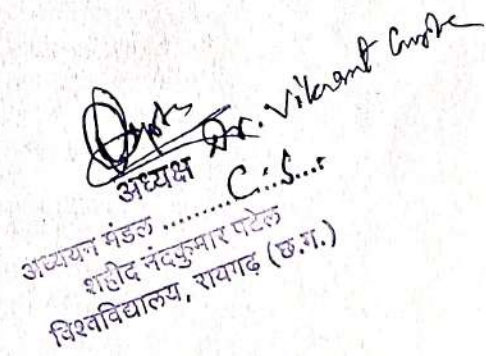 Dr. Vikrant Gupta
अध्यक्ष
अध्ययन मंडल ......... C.S....
शहीद नंदकुमार पटेल
विश्वविद्यालय, रायगढ़ (छ.ग.)